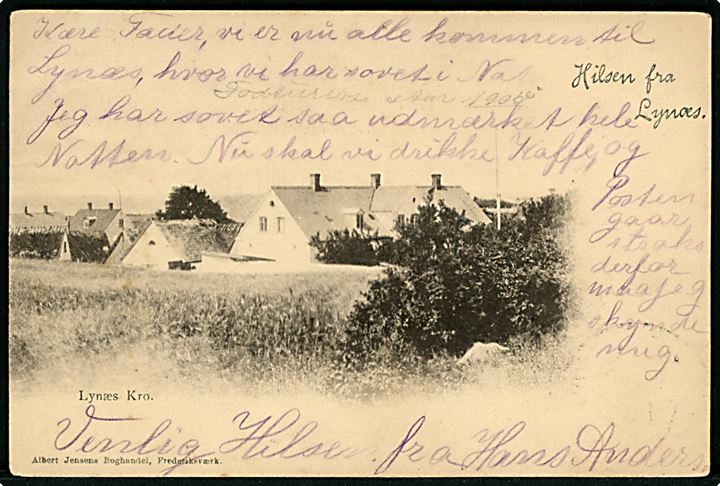 Kære Fader, vi er nu alle kommen til
Lynæs, hvor vi har sovet i Nat
Fodturen Aar 1906
Hilsen fra
Lynæs.
Jeg har sovet saa udmærket hele
Natten. Nu skal vi drikke Kaffe, og
Posten
gaar
straks
derfor
maa jeg
skynde
mig.
Lynæs Kro.
Venlig Hilsen fra Hans Anders
Albert Jensens Boghandel, Frederiksværk.